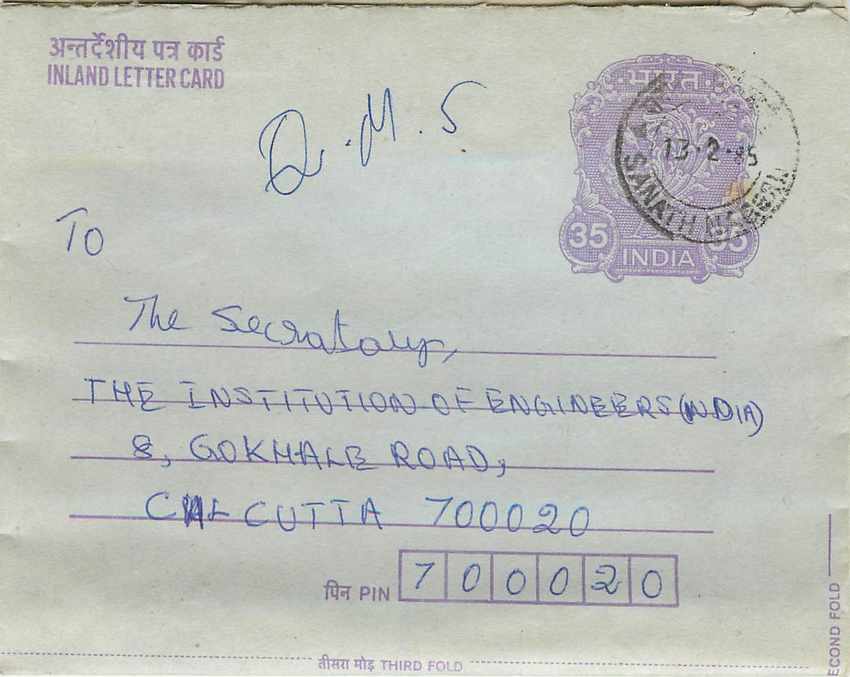 अन्तर्देशीय पत्र कार्ड
INLAND LETTER CARD
Q.M.S
भारत
13·2·85
SANATH NAGAR
35 35
INDIA
TO
The Secratary,
THE INSTITUTION OF ENGINEERS (INDIA)
8, GOKHALE ROAD,
CALCUTTA 700020
पिन PIN 700020
तीसरा मोड़ THIRD FOLD
ECOND FOLD